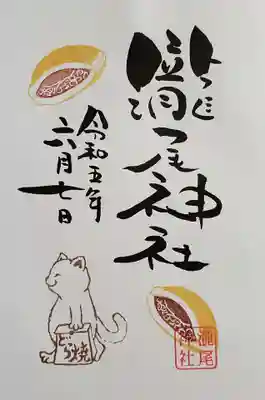 瀧尾神社
令和五年
六月七日
どら焼
瀧尾
神社